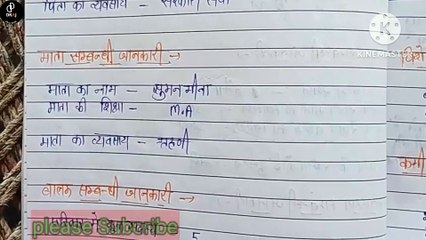 पिता का व्यवसाय - सरकारी सेवा
माता सम्बन्धी जानकारी :→
माता का नाम - सुमन मीना
माता की शिक्षा - M.A
माता का व्यवसाय - गृहणी
बालक सम्बन्धी जानकारी :→
please Subscribe
5
KINEMASTER